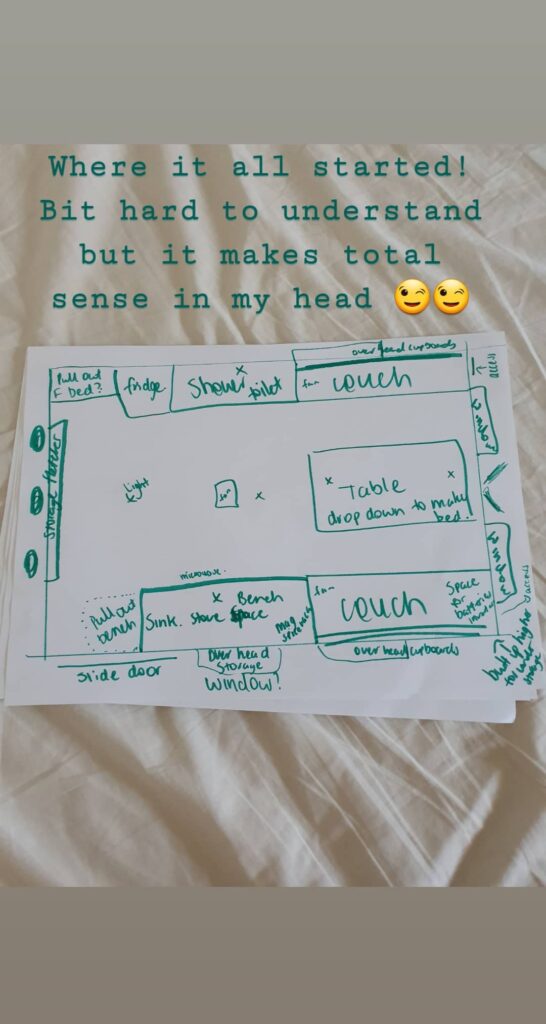 Where it all started!
Bit hard to understand
but it makes total
sense in my head 😉😉
over head cupboards
Pull out
bed?
fridge
Shower
toilet
fan
couch
access
window
Storage
light
fan
Table
drop down to make
bed.
window
microwave.
Pull out
bench
Bench
Sink. Stove Space
mug
fan
couch
Space
for
batteries
access
Slide door
over head
Storage
Window?
over head cupboards
built up higher
for under
storage